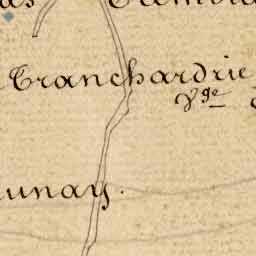 Tranchardrie
Vge
unay.